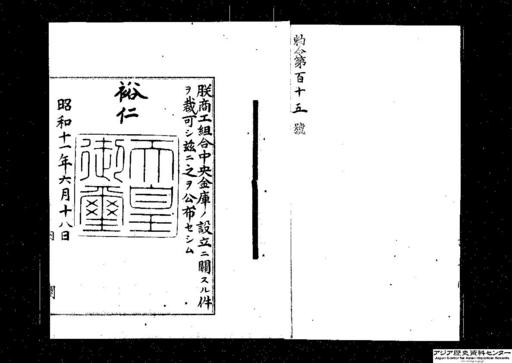 勅令第百十五號
朕商工組合中央金庫ノ設立ニ關スル件
ヲ裁可シ玆ニ之ヲ公布セシム
裕仁
天皇
御璽
昭和十一年六月十八日
内閣
アジア歴史資料センター
Japan Center for Asian Historical Records